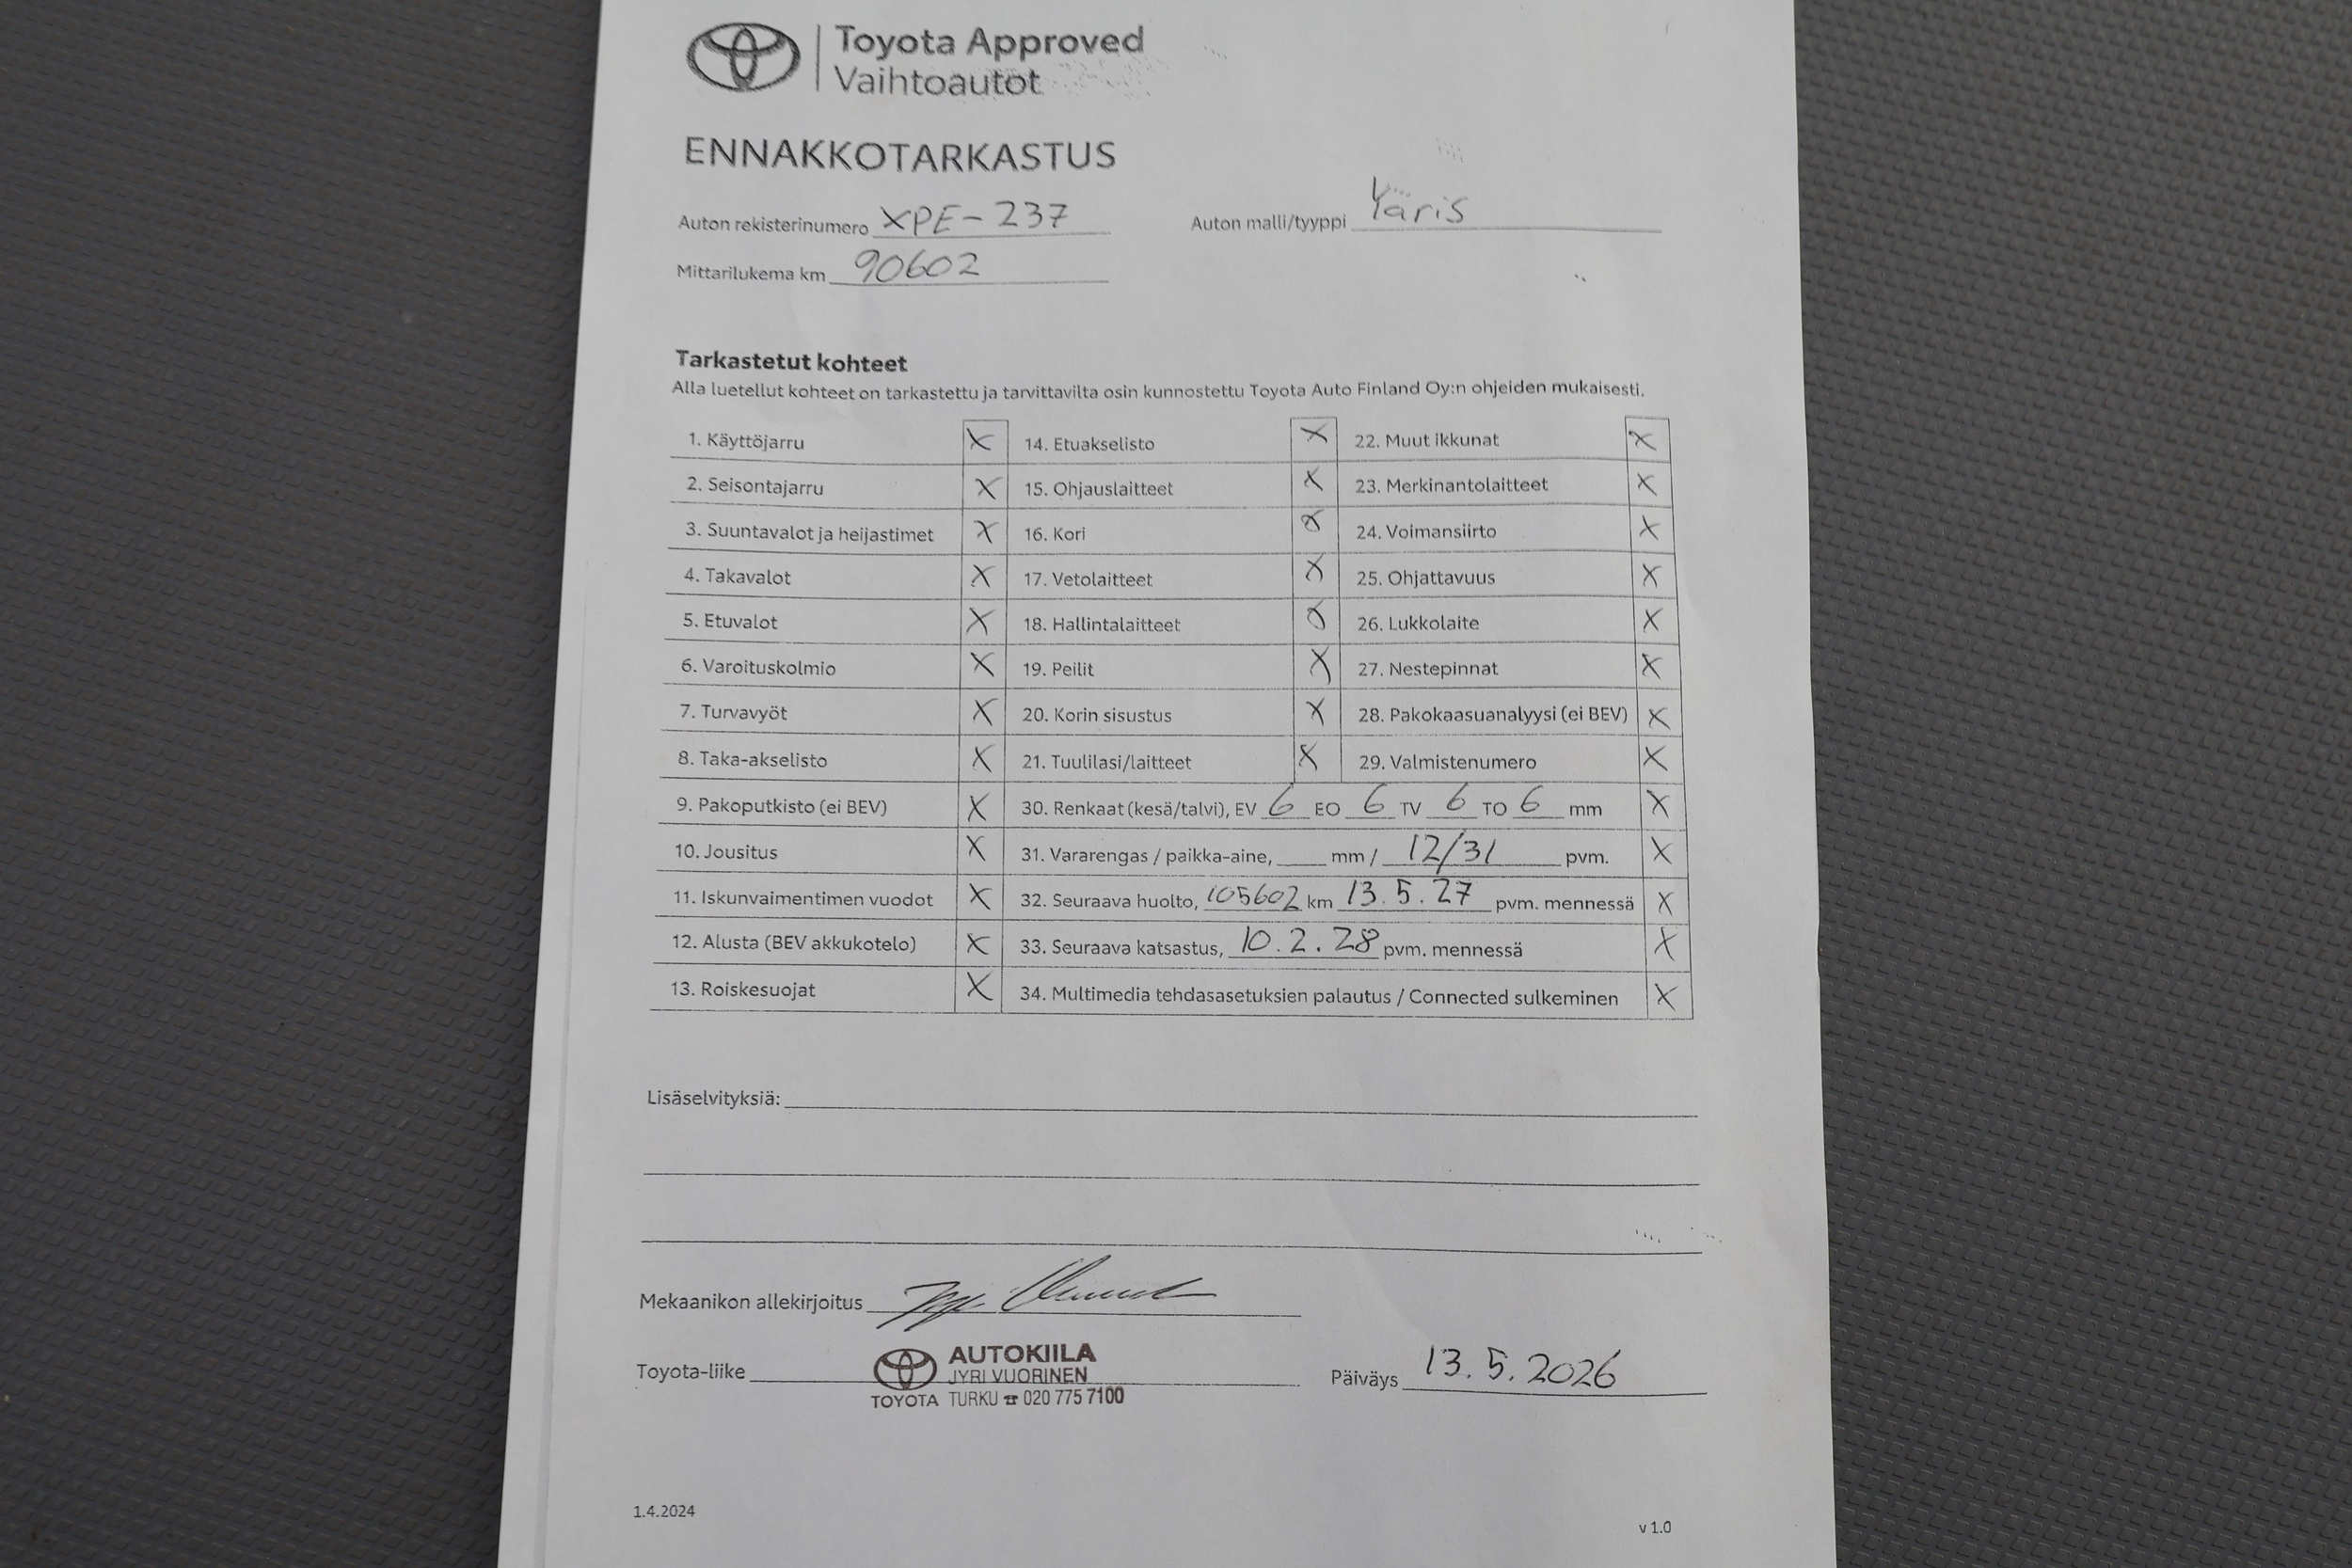 Toyota Approved
Vaihtoautot
ENNAKKOTARKASTUS
Auton rekisterinumero XPE-237 Auton malli/tyyppi Yaris
Mittarilukema km 90602
Tarkastetut kohteet
Alla luetellut kohteet on tarkastettu ja tarvittavilta osin kunnostettu Toyota Auto Finland Oy:n ohjeiden mukaisesti.
1. Käyttöjarru X 14. Etuakselisto X 22. Muut ikkunat X
2. Seisontajarru X 15. Ohjauslaitteet X 23. Merkinantolaitteet X
3. Suuntavalot ja heijastimet X 16. Kori X 24. Voimansiirto X
4. Takavalot X 17. Vetolaitteet X 25. Ohjattavuus X
5. Etuvalot X 18. Hallintalaitteet X 26. Lukkolaite X
6. Varoituskolmio X 19. Peilit X 27. Nestepinnat X
7. Turvavyöt X 20. Korin sisustus X 28. Pakokaasuanalyysi (ei BEV) X
8. Taka-akselisto X 21. Tuulilasi/laitteet X 29. Valmistenumero X
9. Pakoputkisto (ei BEV) X 30. Renkaat (kesä/talvi), EV 6 EO 6 TV 6 TO 6 mm X
10. Jousitus X 31. Vararengas / paikka-aine, mm / 12/31 pvm. X
11. Iskunvaimentimen vuodot X 32. Seuraava huolto, 105602 km 13.5.27 pvm. mennessä X
12. Alusta (BEV akkukotelo) X 33. Seuraava katsastus, 10.2.28 pvm. mennessä X
13. Roiskesuojat X 34. Multimedia tehdasasetuksien palautus / Connected sulkeminen X
Lisäselvityksiä:
Mekaanikon allekirjoitus
Toyota-liike AUTOKIILA
JYRI VUORINEN
TOYOTA TURKU ☎ 020 775 7100
Päiväys 13.5.2026
1.4.2024 v 1.0